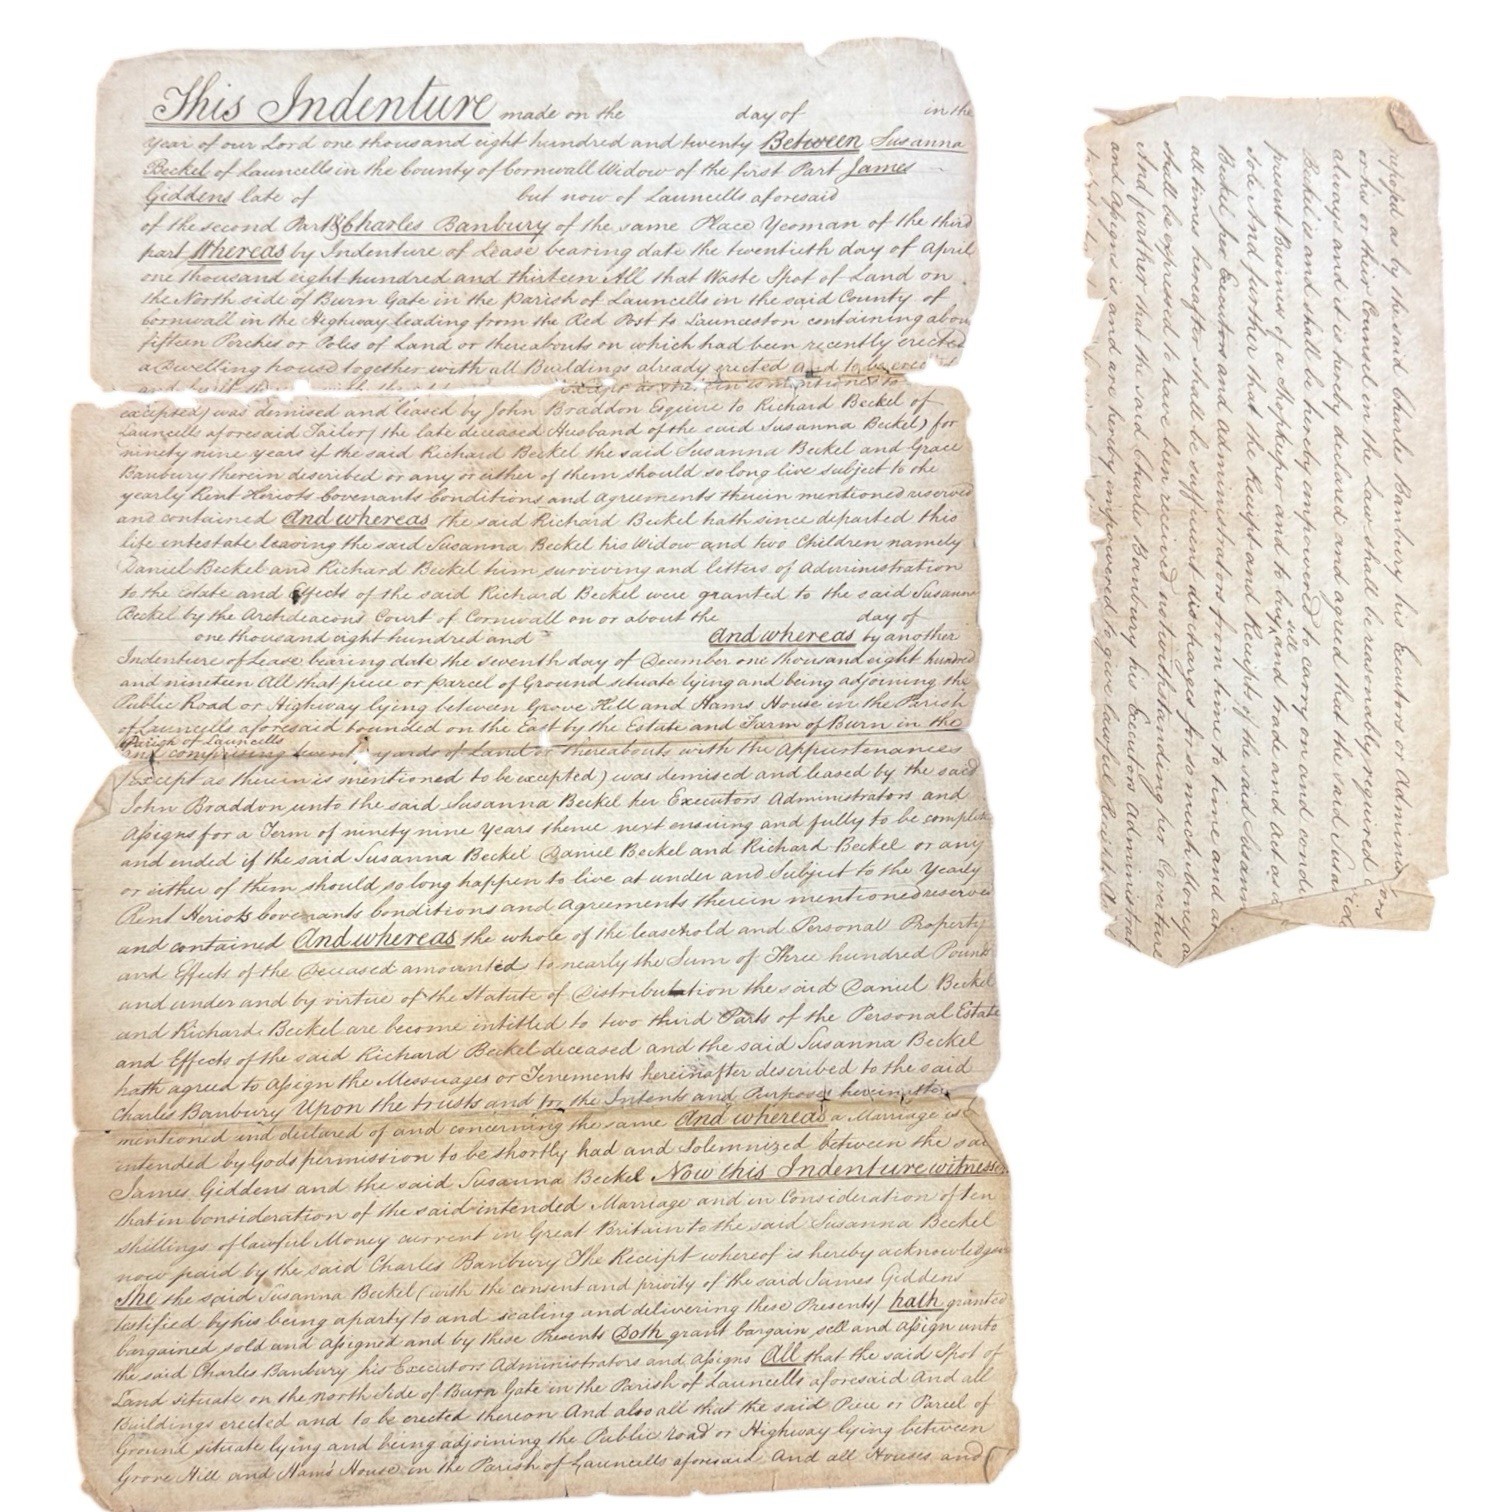 This Indenture made on the day of in the
year of our Lord one thousand eight hundred and twenty Between Susanna
Beckel of Launcells in the County of Cornwall Widow of the first Part James
Giddens late of but now of Launcells aforesaid
of the second Part & Charles Banbury of the same Place Yeoman of the third
part Whereas by Indenture of Lease bearing date the twentieth day of April
one thousand eight hundred and thirteen All that Waste Spot of Land on
the North side of Burn Gate in the Parish of Launcells in the said County of
Cornwall in the Highway leading from the Red Post to Launceston containing abou
fifteen Perches or Poles of Land or thereabouts on which had been recently erected
a Dwelling house together with all Buildings already erected and to be erec
and except as therein is mentioned to
excepted) was demised and leased by John Braddon Esquire to Richard Beckel of
Launcells aforesaid Tailor (the late deceased Husband of the said Susanna Beckel) for
ninety nine years if the said Richard Beckel the said Susanna Beckel and Grace
Banbury therein described or any or either of them should so long live subject to the
yearly Rent Heriots Covenants Conditions and Agreements therein mentioned reserved
and contained And whereas the said Richard Beckel hath since departed this
life intestate leaving the said Susanna Beckel his Widow and two Children namely
Daniel Beckel and Richard Beckel him surviving and letters of Administration
to the Estate and Effects of the said Richard Beckel were granted to the said Susanna
Beckel by the Archdeacons Court of Cornwall on or about the day of
one thousand eight hundred and And whereas by another
Indenture of Lease bearing date the seventh day of December one thousand eight hundred
and nineteen All that piece or parcel of Ground situate lying and being adjoining the
Public Road or Highway lying between Grove Hill and Hams House in the Parish
of Launcells aforesaid bounded on the East by the Estate and Farm of Burn in the
Parish of Launcells
and comprising twent yards of Land or thereabouts with the Appurtenances
(except as therein is mentioned to be excepted) was demised and leased by the said
John Braddon unto the said Susanna Beckel her Executors Administrators and
Assigns for a Term of ninety nine Years thence next ensuing and fully to be complete
and ended if the said Susanna Beckel Daniel Beckel and Richard Beckel or any
or either of them should so long happen to live at under and Subject to the Yearly
Rent Heriots Covenants Conditions and Agreements therein mentioned reserved
and contained And whereas the whole of the leasehold and Personal Property
and Effects of the Deceased amounted to nearly the Sum of Three hundred Pounds
and under and by virtue of the Statute of Distribution the said Daniel Beckel
and Richard Beckel are become intitled to two third Parts of the Personal Estate
and Effects of the said Richard Beckel deceased and the said Susanna Beckel
hath agreed to Assign the Messuages or Tenements hereinafter described to the said
Charles Banbury Upon the trusts and for the Intents and Purposes hereinafter
mentioned and declared of and concerning the same And whereas a Marriage is
intended by Gods permission to be shortly had and Solemnized between the sai
James Giddens and the said Susanna Beckel Now this Indenture witnesse
that in Consideration of the said intended Marriage and in Consideration of ten
shillings of lawful Money current in Great Britain to the said Susanna Beckel
now paid by the said Charles Banbury The Receipt whereof is hereby acknowledged
She the said Susanna Beckel (with the consent and privity of the said James Giddens
testified by his being a party to and sealing and delivering these Presents) hath granted
bargained sold and Assigned and by these Presents Doth grant bargain sell and Assign unto
the said Charles Banbury his Executors Administrators and Assigns All that the said Spot of
Land situate on the north Side of Burn Gate in the Parish of Launcells aforesaid And all
Buildings erected and to be erected thereon And also all that the said Piece or Parcel of
Ground situate lying and being adjoining the Public road or Highway lying between
Grove Hill and Ham's House in the Parish of Launcells aforesaid And all Houses and
by the said Charles Banbury his Executors or Adminis
or his or their Counsel in the Law shall be reasonably required
always and it is hereby declared and agreed that the said Susan
Beckel is and shall be hereby empowered to carry on and condu
present Business of a Shopkeeper and to buy sell and trade and act as a
Sole And further that the Receipt and Receipts of the said Susann
Beckel her Executors and Administrators from time to time and at
all times hereafter shall be sufficient discharges for so much Money a
shall be expressed to have been received notwithstanding her Coverture
And further that the said Charles Banbury his Executors Administrat
and Assigns is and are hereby impowered to give lawful